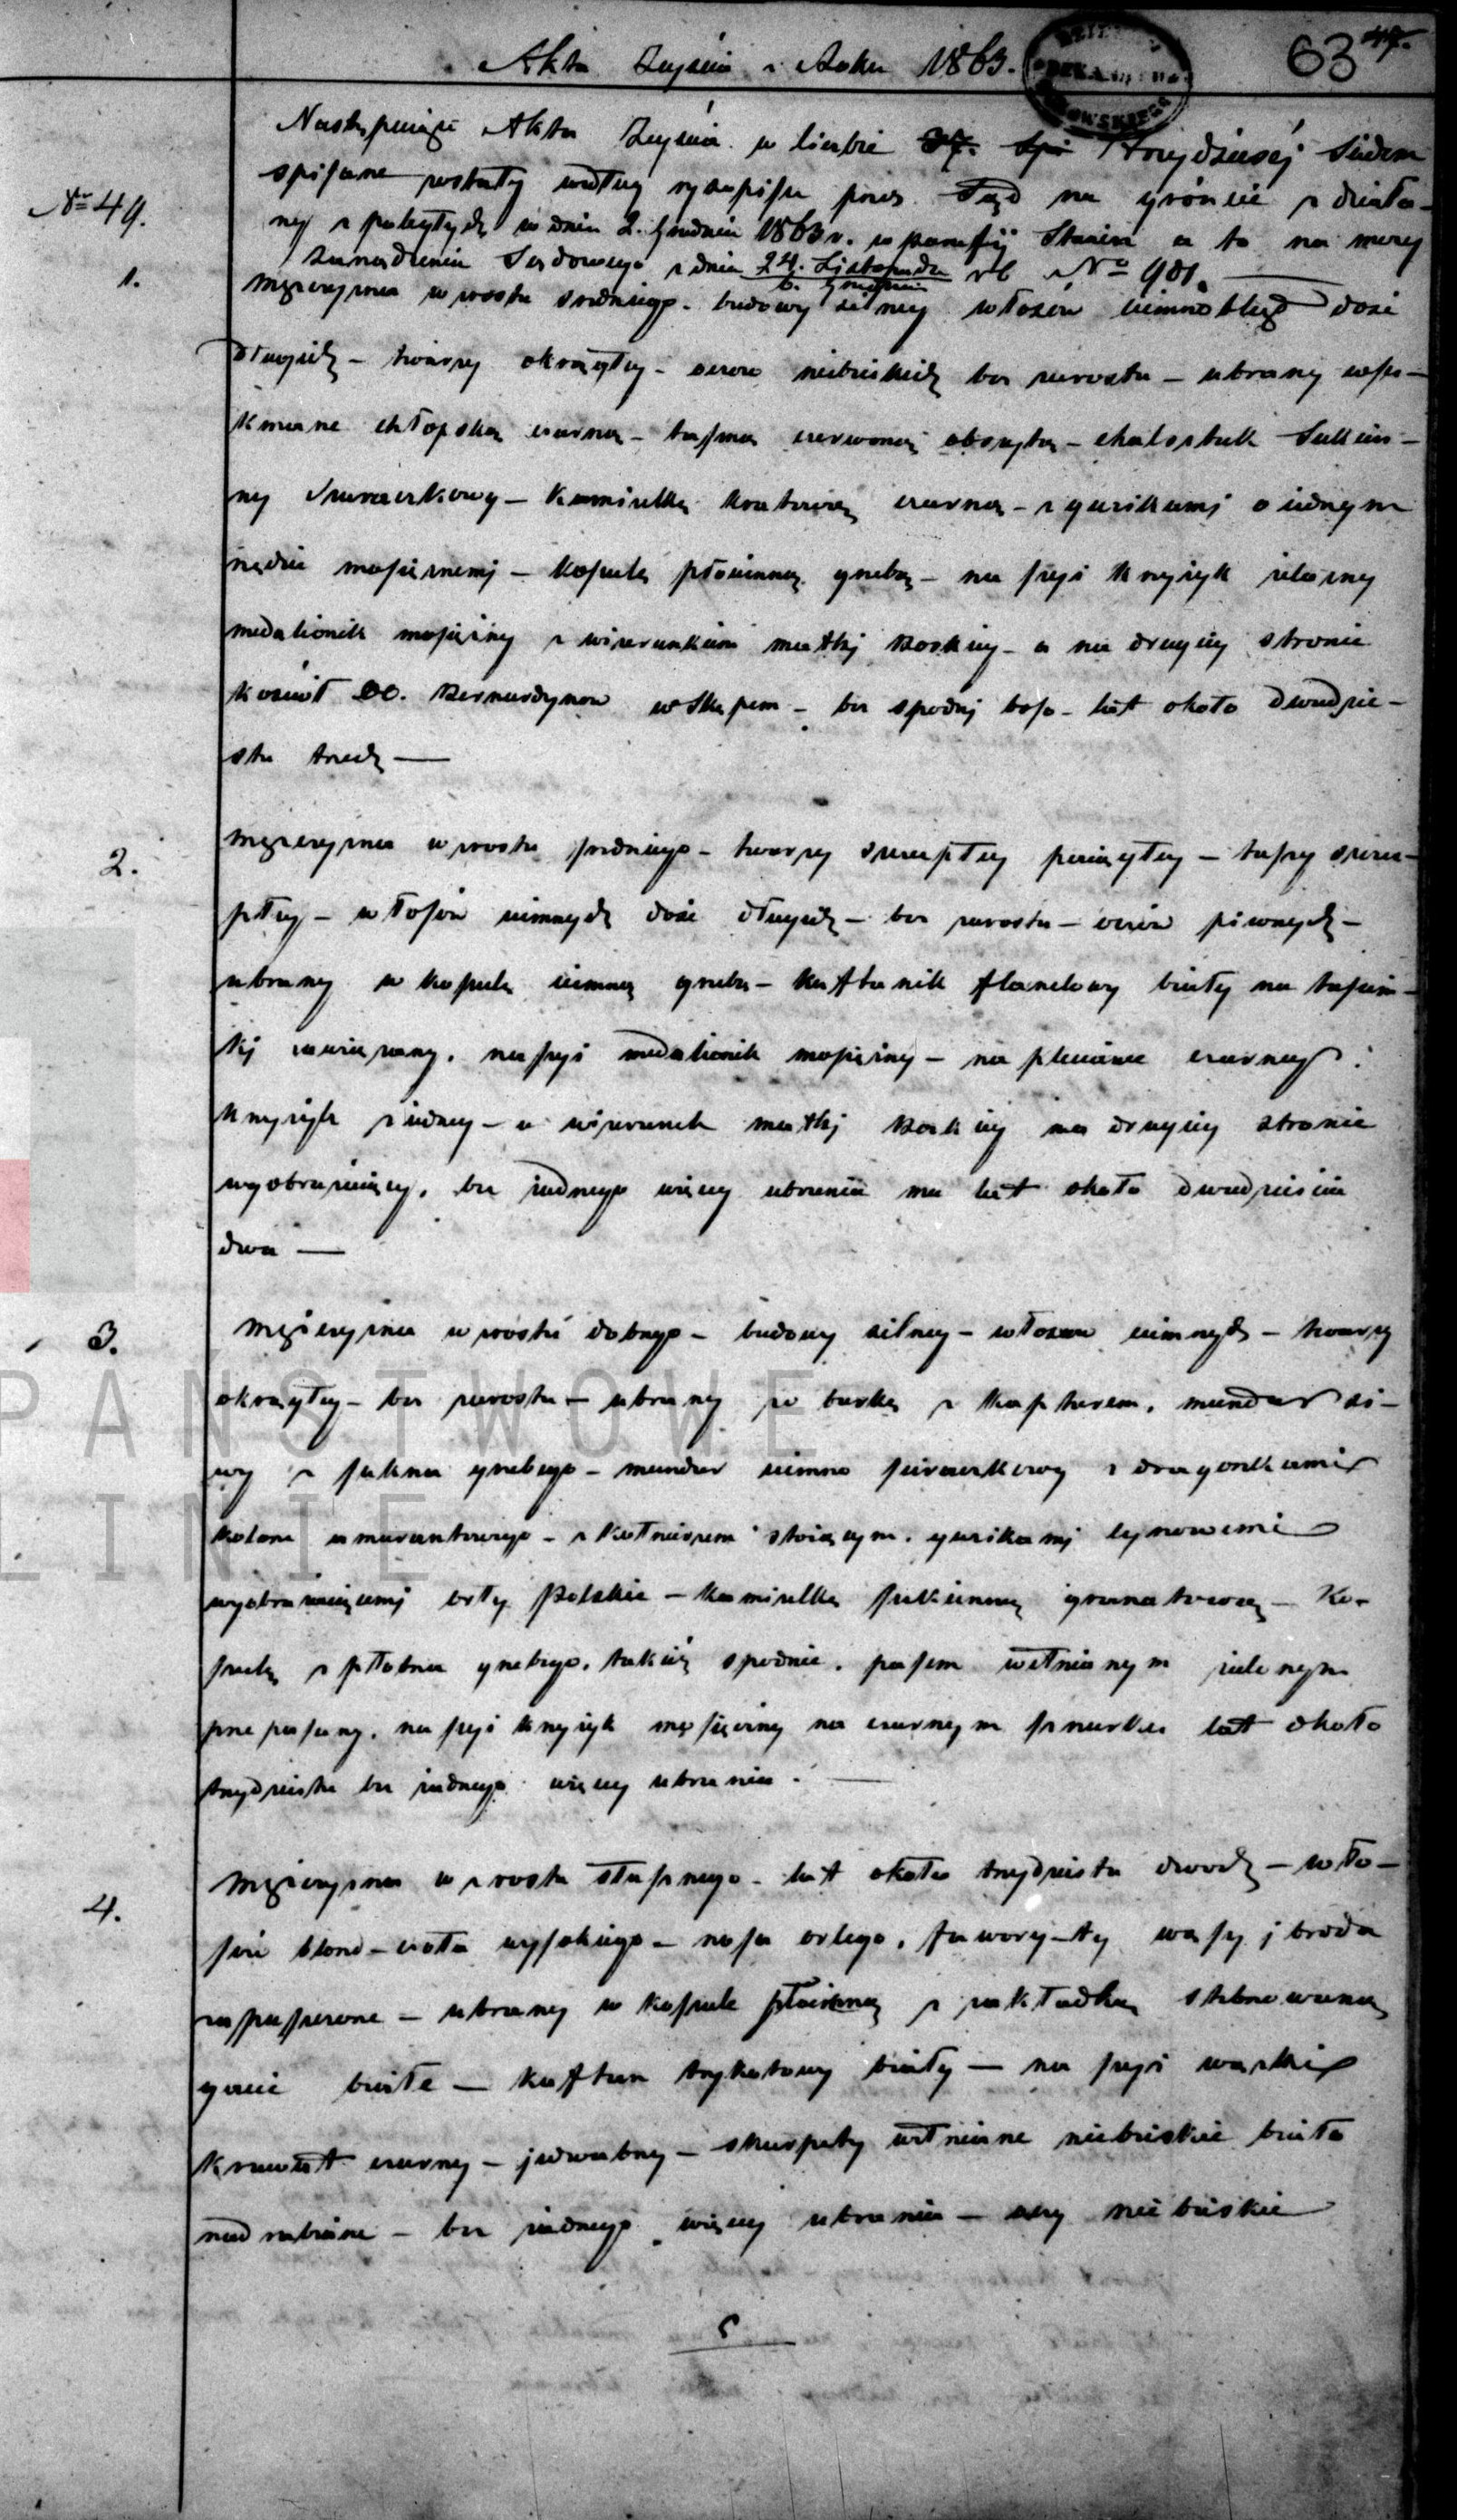 Akta Zejścia z Roku 1863.
63
47.
Następujące Akta Zejścia w liczbie 37. Spi Trzydzieści siedem
Nr 49.
spisane zostały według rysopisu przez Sąd na gróncie zdziała-
nej z pobytych w dniu 2. Grudnia 1863 r. w parafij a to na mocy
zarządzenia Sądowego z dnia 24. Listopada rb No 901.
6. Grudnia
1.
Męzczyzna wzrostu średniego - budowy silnej włosów ciemnobląd dość
długich - twarzy okrągłej - oczów niebieskich bez zarostu - ubrany wsu-
kmane chłopską czarną - taśmą czerwoną obszytą - chalsztuk Sukien-
ny Szuraczkowy - kamizelką kratową czarną - z guzikamj o jednym
rzędzie mosiężnemj - koszulę płócienną grubą - na szyi krzyżyk żelazny
medalionik mosiężny z wizerunkiem matkj Boskiej - a na drugiej stronie
kościół OO. Bernardynow w Skępem - bez spodnj boso - lat około dwudzie-
stu trzech —
2.
Męzczyzna wzrostu średniego - twarzy szczupłej pociągłej - tuszy szczu-
płej - włosów ciemnych dość długich - bez zarostu - oczów piwnych -
ubrany w koszulę ciemną grubą - kaftanik flanelowy biały na tasiem-
kj zawiązany. na szyi medalionik mosiężny - na plecionce czarnej:
krzyżyk z jednej - a wizerunek matkj Boskiej na drugiej stronie
wyobrażający. bez żadnego więcej ubrania ma lat około dwadzieścia
dwa —
3.
Męzczyzna wzrostu dobrego - budowy silnej - włosow ciemnych - twarzy
okrągłej - bez zarostu - ubrany w burkę z kapturem. mundur si-
wy z sukna grubego - mundur ciemno szuraczkowy z dragonkami
koloru amarantowego - z kołnierzem stojącym. guzikamj cynowemi
wyobrażającemj orły Polskie - kamizelkę sukienną granatową - Ko-
szulę z płótna grubego, takież spodnie. pasem wełnianym zielonym
przepasany. na szyi krzyżyk mosiężny na czarnym sznurku lat około
trzydziestu bez żadnego więcej ubrania. —
4.
Męzczyzna wzrostu słusznego - lat około trzydziestu dwóch - wło-
sów blond - czoła wysokiego - nosa orlego. faworyty wąsy j broda
zapuszczone - ubrany w koszule płócienną z zakładką stebnowaną
gacie białe - kaftan trykotowy biały - na szyi wąski
krawat czarny - jedwabny - skarpety wełniane niebieskie biało
nadrabiane - bez żadnego więcej ubrania - oczy niebieskie
PANSTWOWE
LINIE